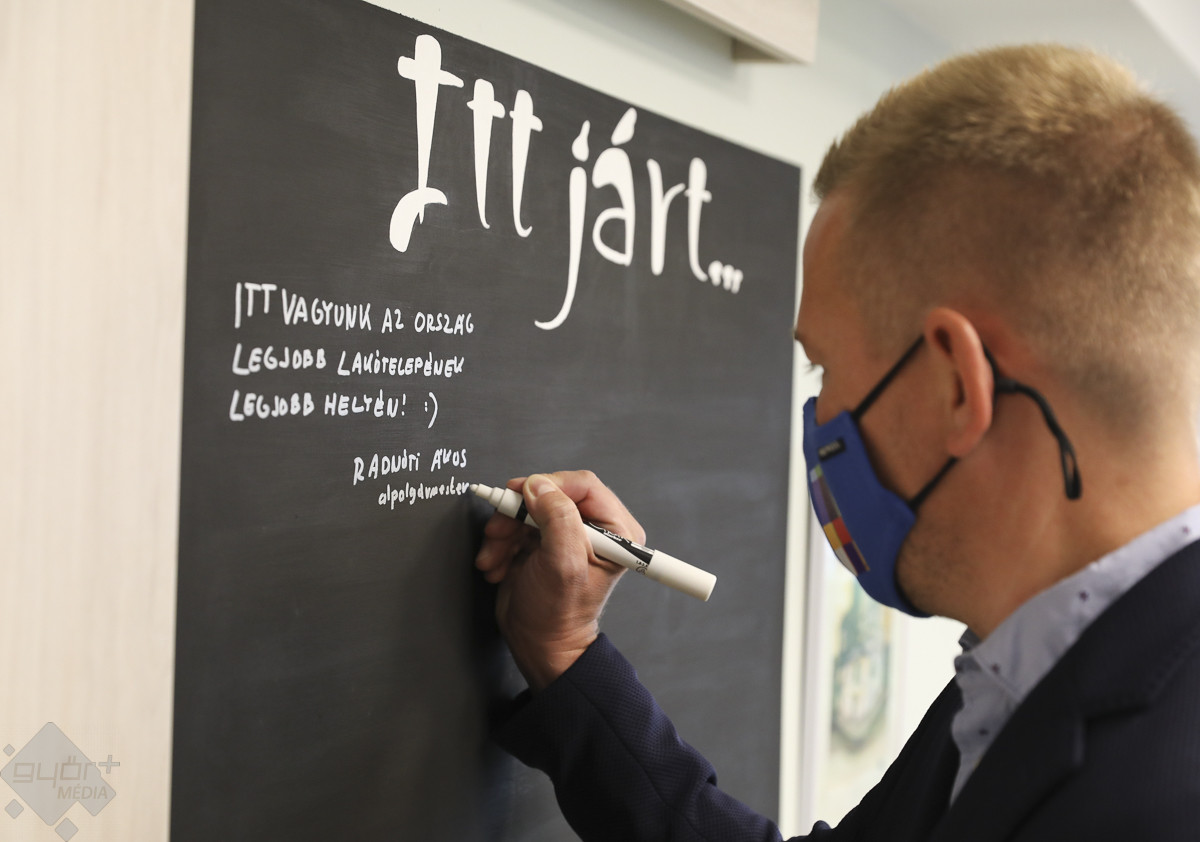 Itt járt...
ITT VAGYUNK AZ ORSZÁG
LEGJOBB LAKÓTELEPÉNEK
LEGJOBB HELYÉN! :)
RADNÓTI ÁKOS
alpolgármester
győr+
MÉDIA